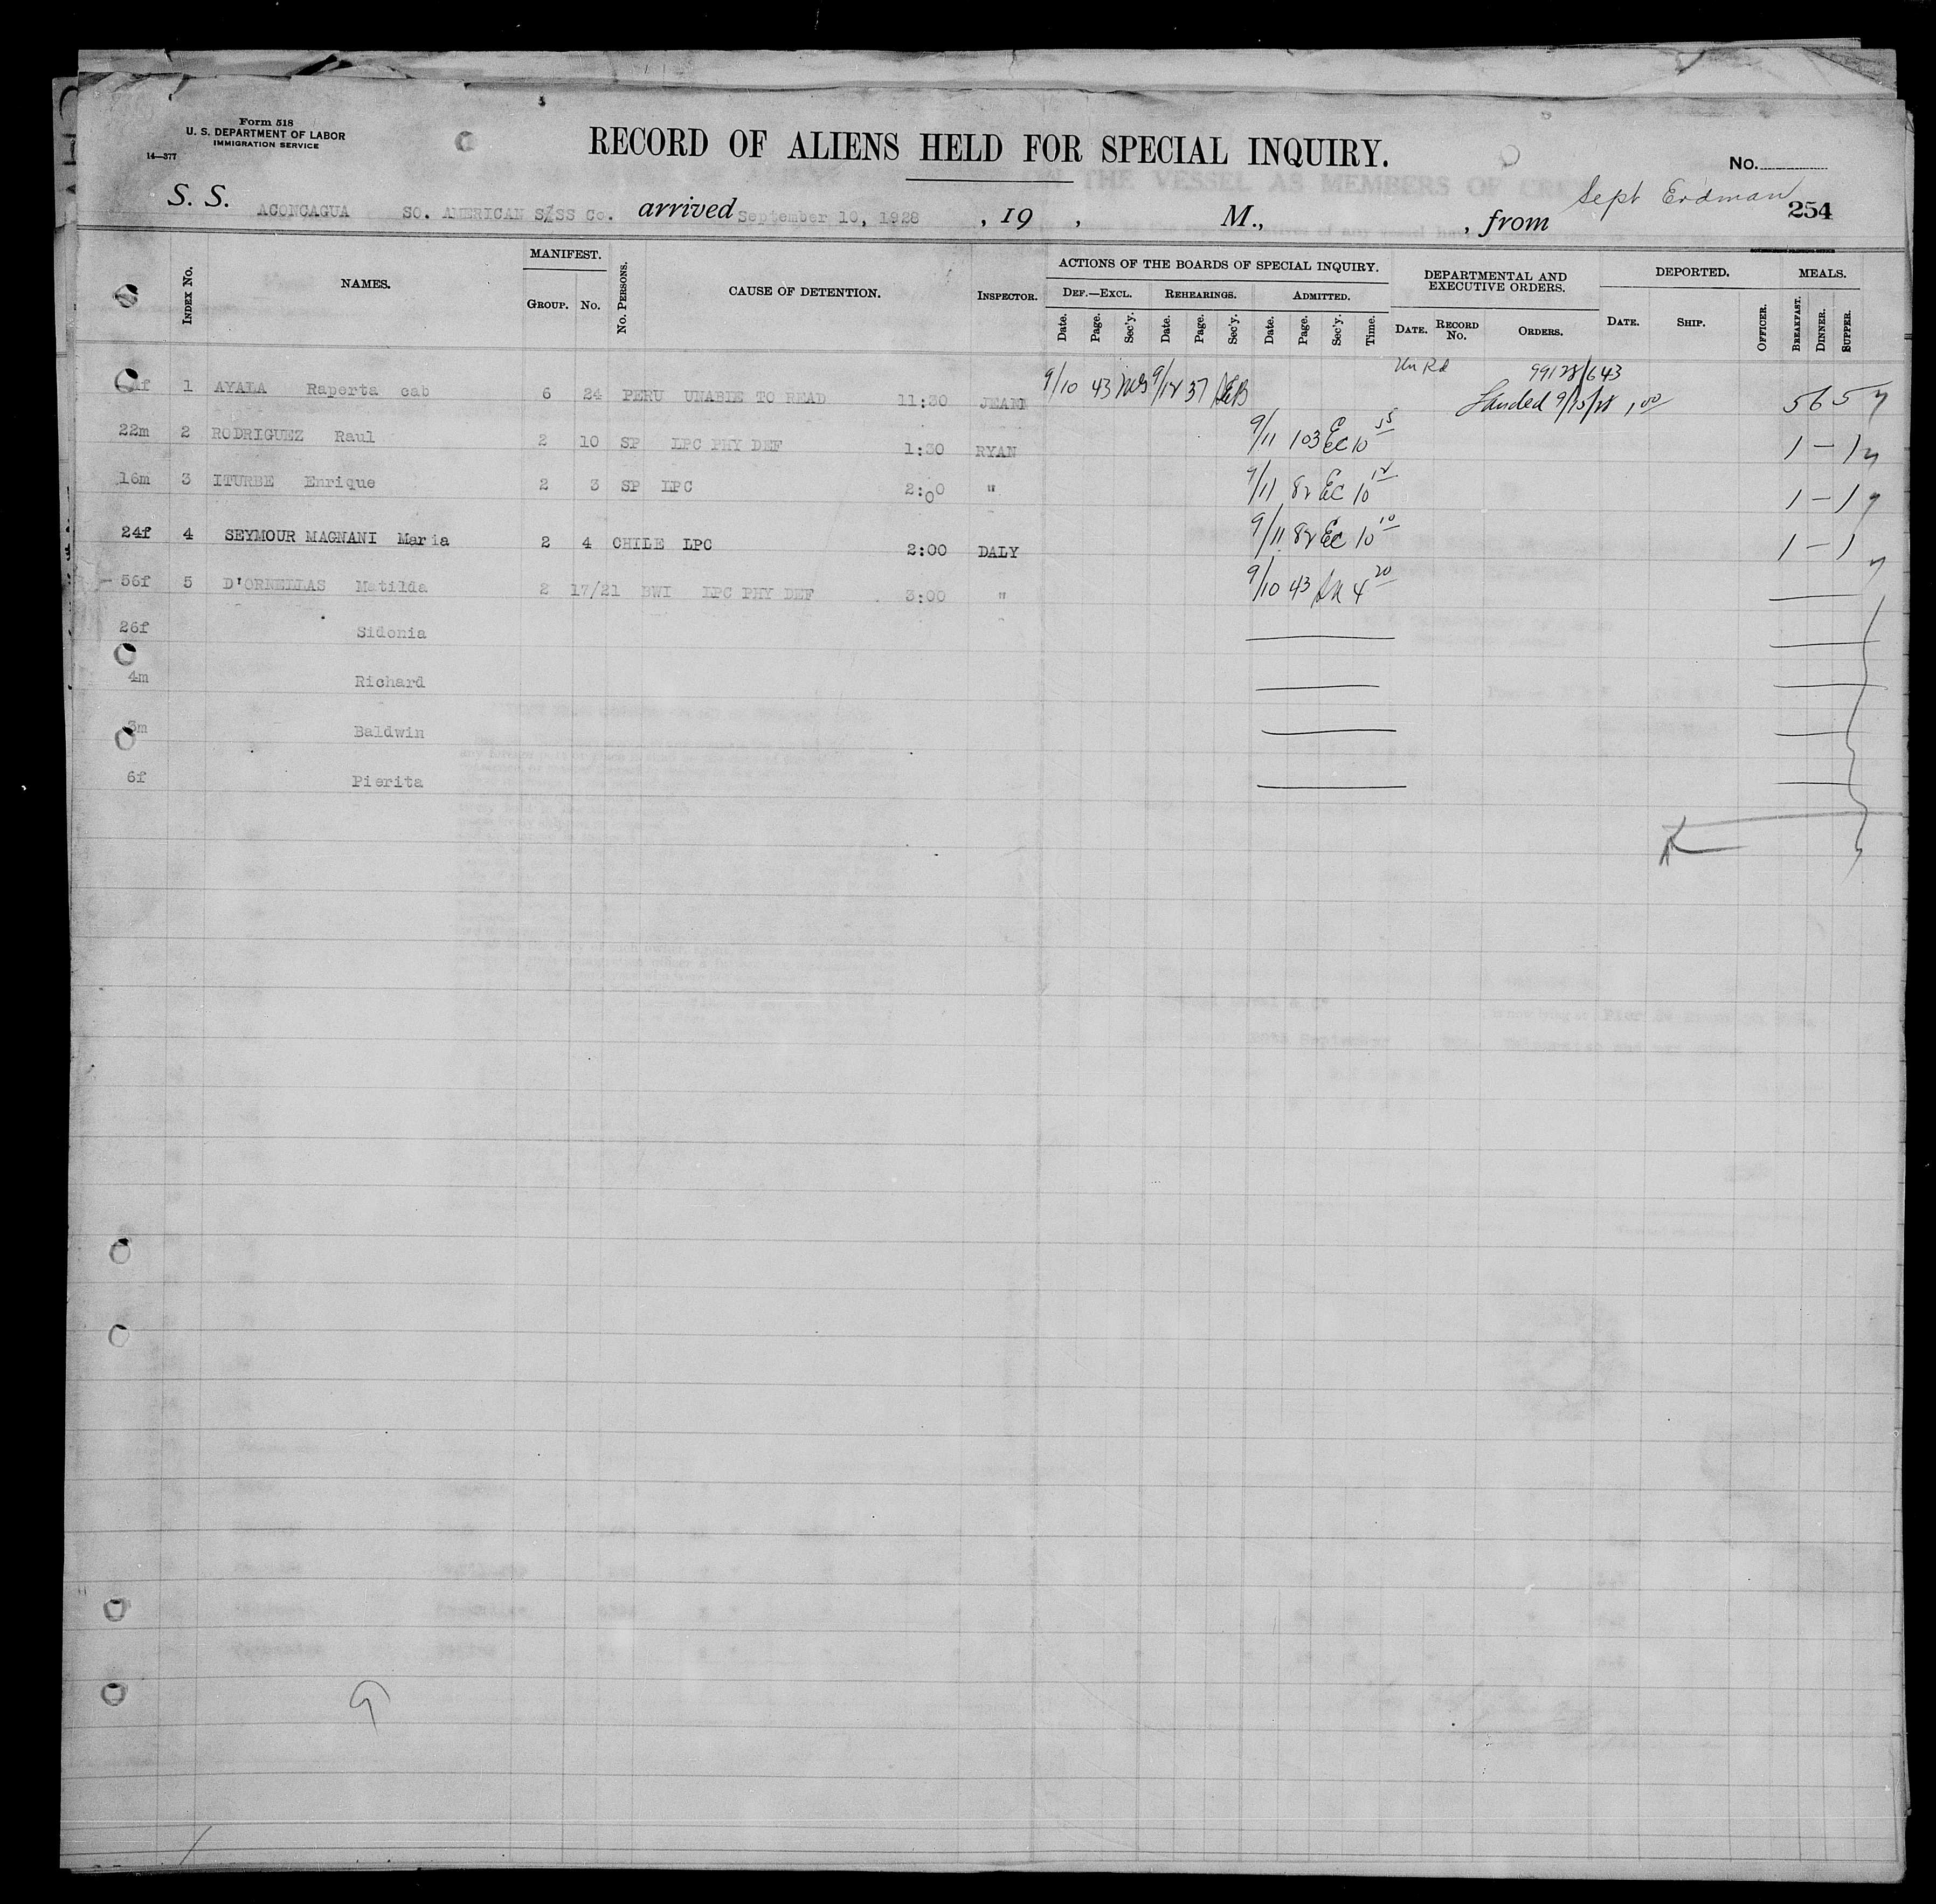 Form 518
U. S. DEPARTMENT OF LABOR
IMMIGRATION SERVICE
14—377
RECORD OF ALIENS HELD FOR SPECIAL INQUIRY.
No.
S. S. ACONCAGUA SO. AMERICAN S/SS Co. arrived September 10, 1928, 19 , M., , from Sept Erdman
254
Index No. NAMES. MANIFEST. GROUP. No. No. Persons. CAUSE OF DETENTION. INSPECTOR. ACTIONS OF THE BOARDS OF SPECIAL INQUIRY. DEPARTMENTAL AND EXECUTIVE ORDERS. DEPORTED. MEALS.
DEF.—EXCL. REHEARINGS. ADMITTED.
Date. Page. Sec'y. Date. Page. Sec'y. Date. Page. Sec'y. Time. DATE. RECORD No. ORDERS. DATE. SHIP. OFFICER. BREAKFAST. DINNER. SUPPER.
Un Rd 99128/643
1 AYALA Raperta cab 6 24 PERU UNABLE TO READ 11:30 JEANN 9/10 43 9/12 37 Landed 9/15/28 1,00 5 6 5
22m 2 RODRIGUEZ Raul 2 10 SP LPC PHY DEF 1:30 RYAN 9/11 103 EC 10 55 1 — 1
16m 3 ITURBE Enrique 2 3 SP LPC 2:00 " 9/11 82 EC 10 12 1 — 1
24f 4 SEYMOUR MAGNANI Maria 2 4 CHILE LPC 2:00 DALY 9/11 82 EC 10 10 1 — 1
56f 5 D'ORNELLAS Matilda 2 17/21 BWI LPC PHY DEF 3:00 " 9/10 43 4 20 —
26f Sidonia — —
4m Richard — —
3m Baldwin — —
6f Pierita — —